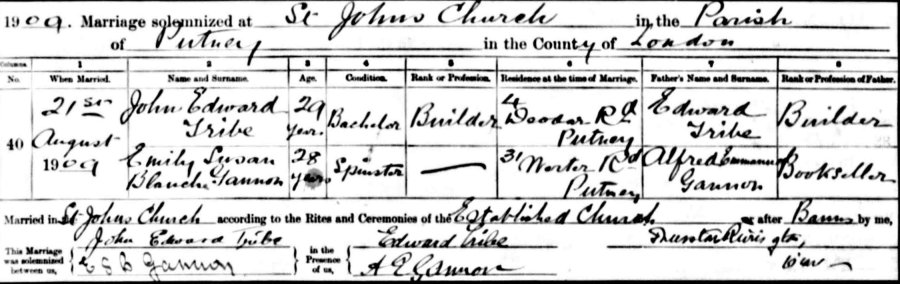 1909. Marriage solemnized at St Johns Church in the Parish
of Putney in the County of London
Columns. 1 2 3 4 5 6 7 8
No. When Married. Name and Surname. Age. Condition. Rank or Profession. Residence at the time of Marriage. Father's Name and Surname. Rank or Profession of Father.
40
21st
August
1909
John Edward
Tribe
29
years
Bachelor
Builder
4
Deodar Rd
Putney
Edward
Tribe
Builder
Emily Susan
Blanche Gannon
28
years
Spinster
—
31
Worter Rd
Putney
Alfred Emmanuel
Gannon
Bookseller
Married in St Johns Church according to the Rites and Ceremonies of the Established Church or after Banns by me,
This Marriage was solemnized between us,
John Edward Tribe
E S B Gannon
in the Presence of us,
Edward Tribe
A E Gannon